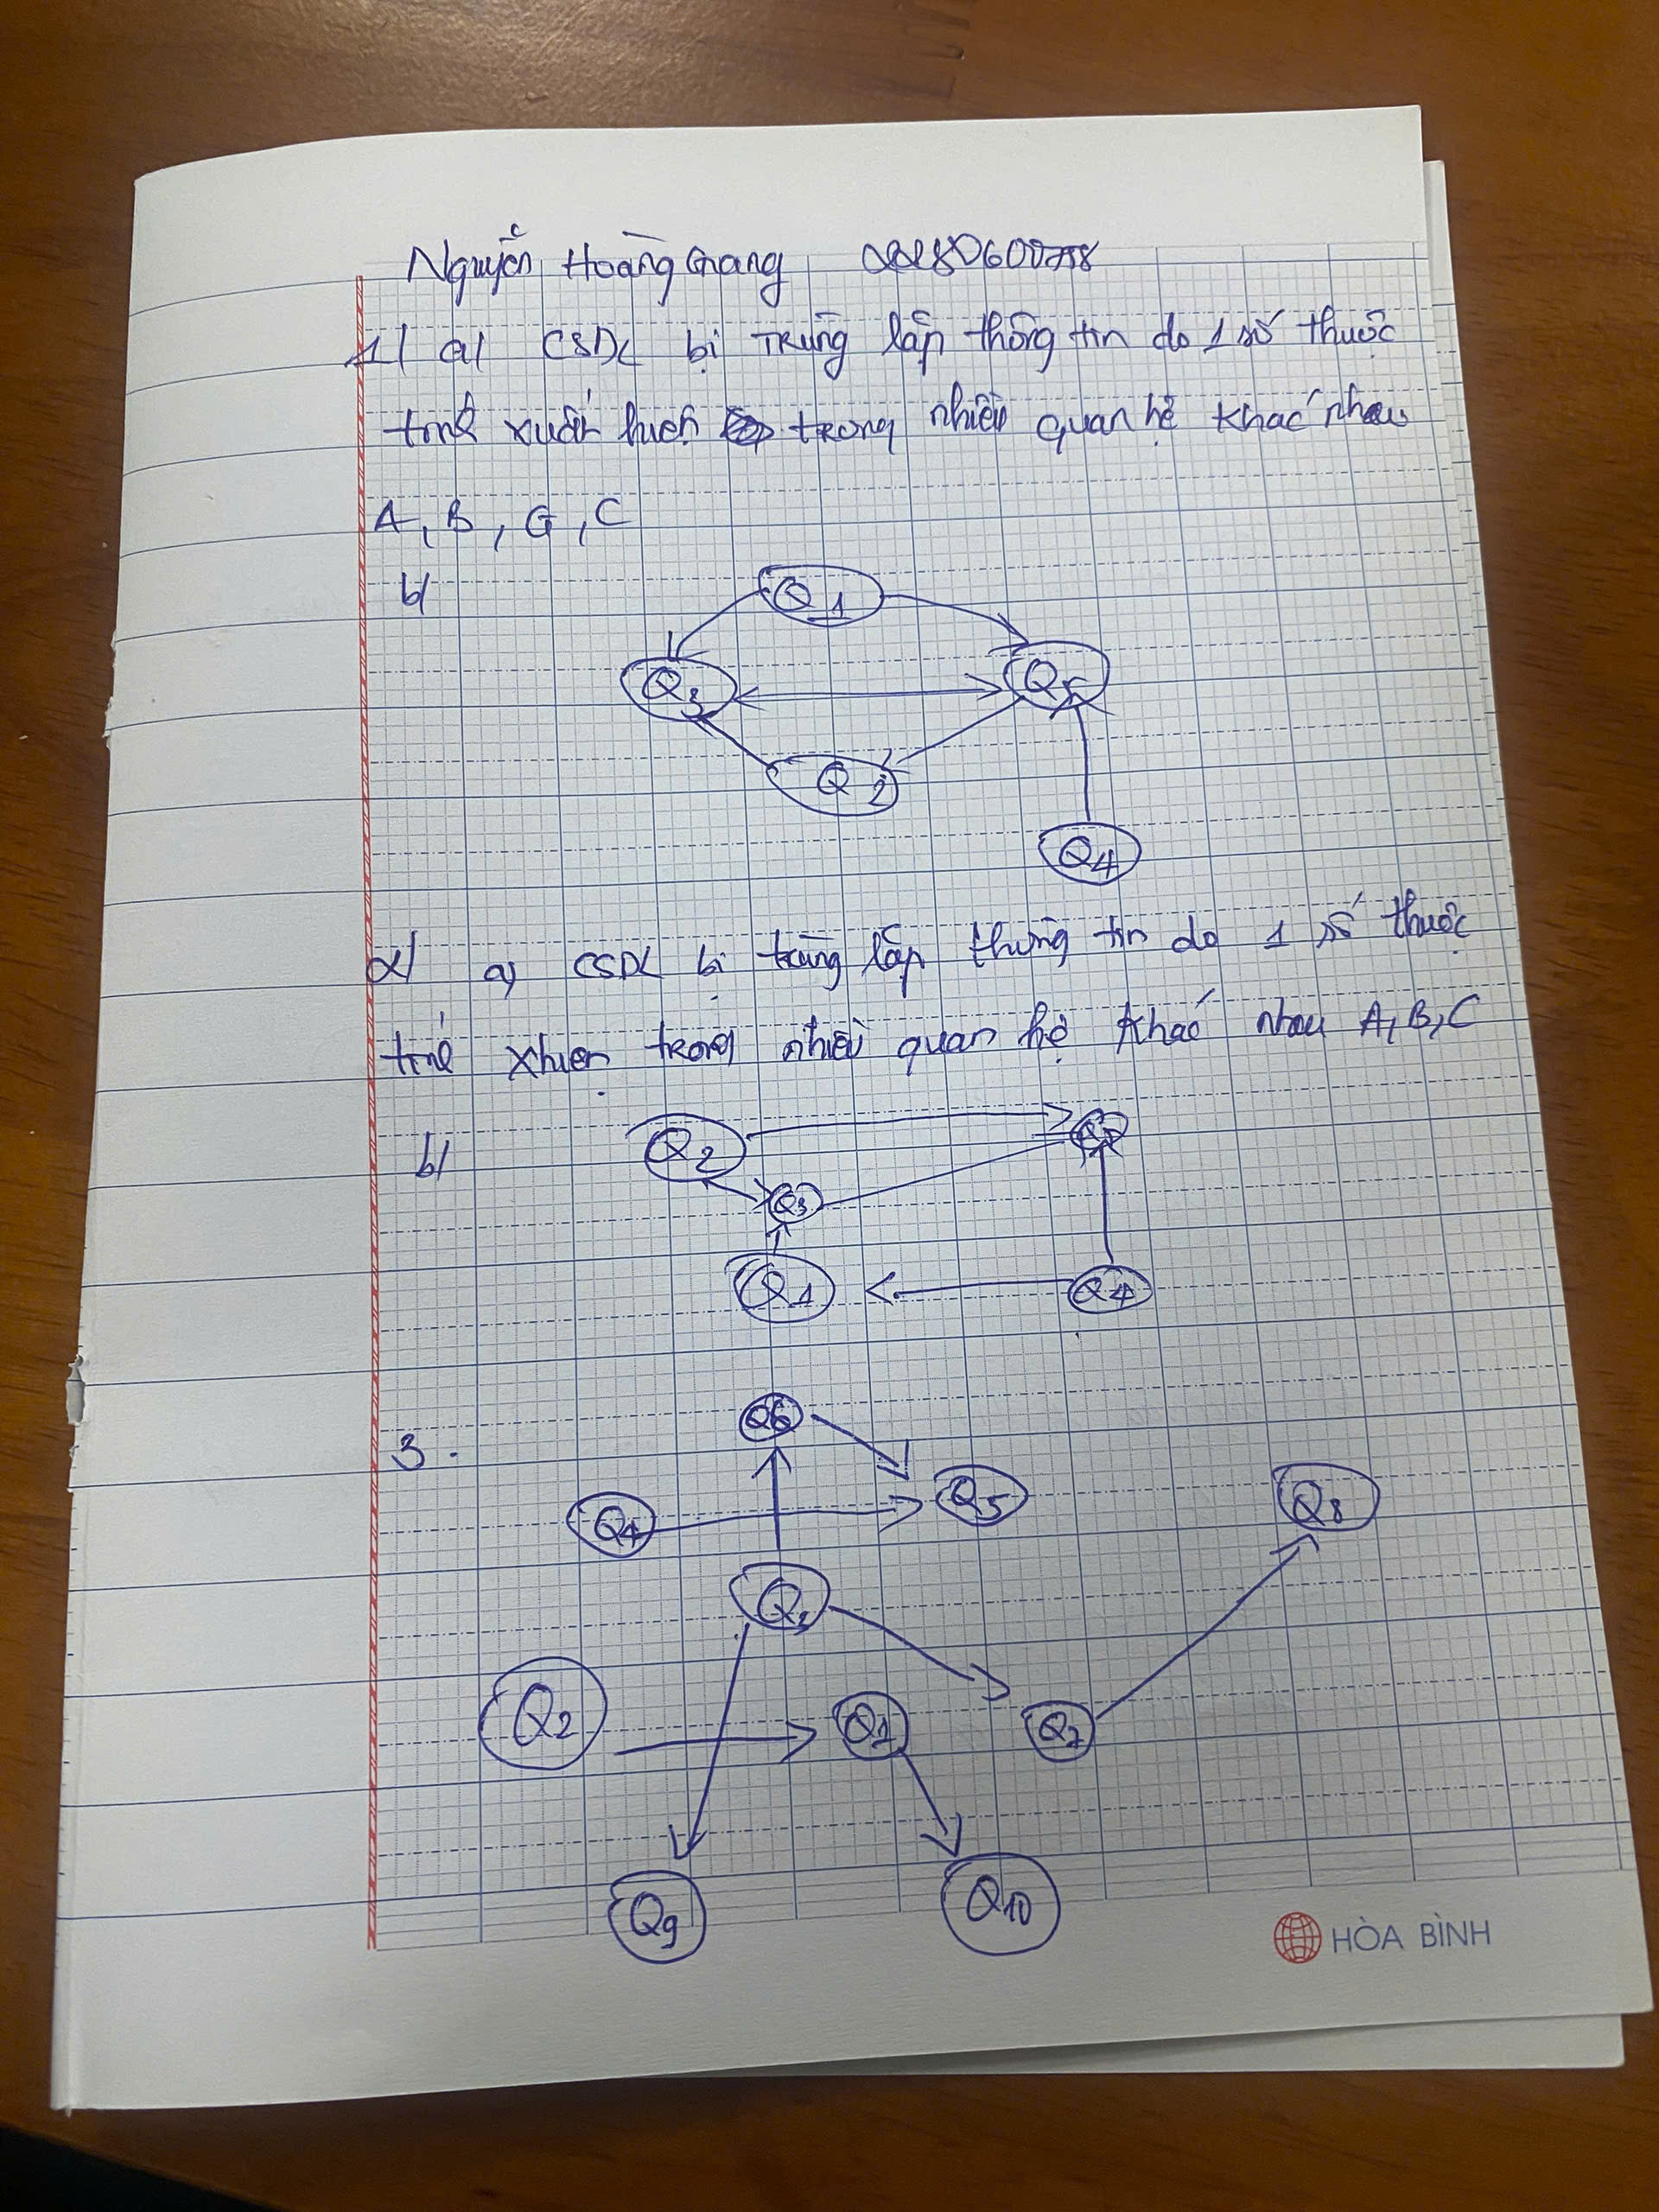 Nguyễn Hoàng Giang
1/ a/ CSDL bị Trùng lắp thông tin do 1 số thuộc
tính xuất hiện trong nhiều quan hệ khác nhau
A, B, G, C
b/
Q1
Q3 Q5
Q2
Q4
2/ a) CSDL bị trùng lắp thông tin do 1 số thuộc
tính xhiện trong nhiều quan hệ khác nhau A, B, C
b/ Q2
Q3
Q1 Q4
Q6
3.
Q4 Q5 Q8
Q3
Q2 Q1 Q7
Q9 Q10
HÒA BÌNH